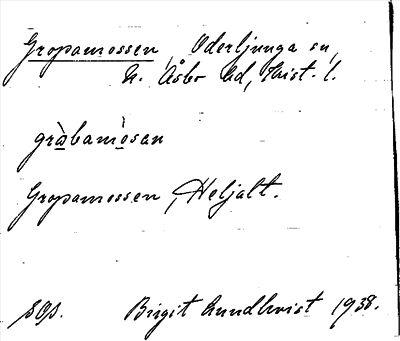 Gropamossen, Oderljunga sn,
N. Åsbo hd, Krist. l.
gràbamòsan
Gropamossen, Heljalt.
SOP. Birgit Rundkvist 1938.